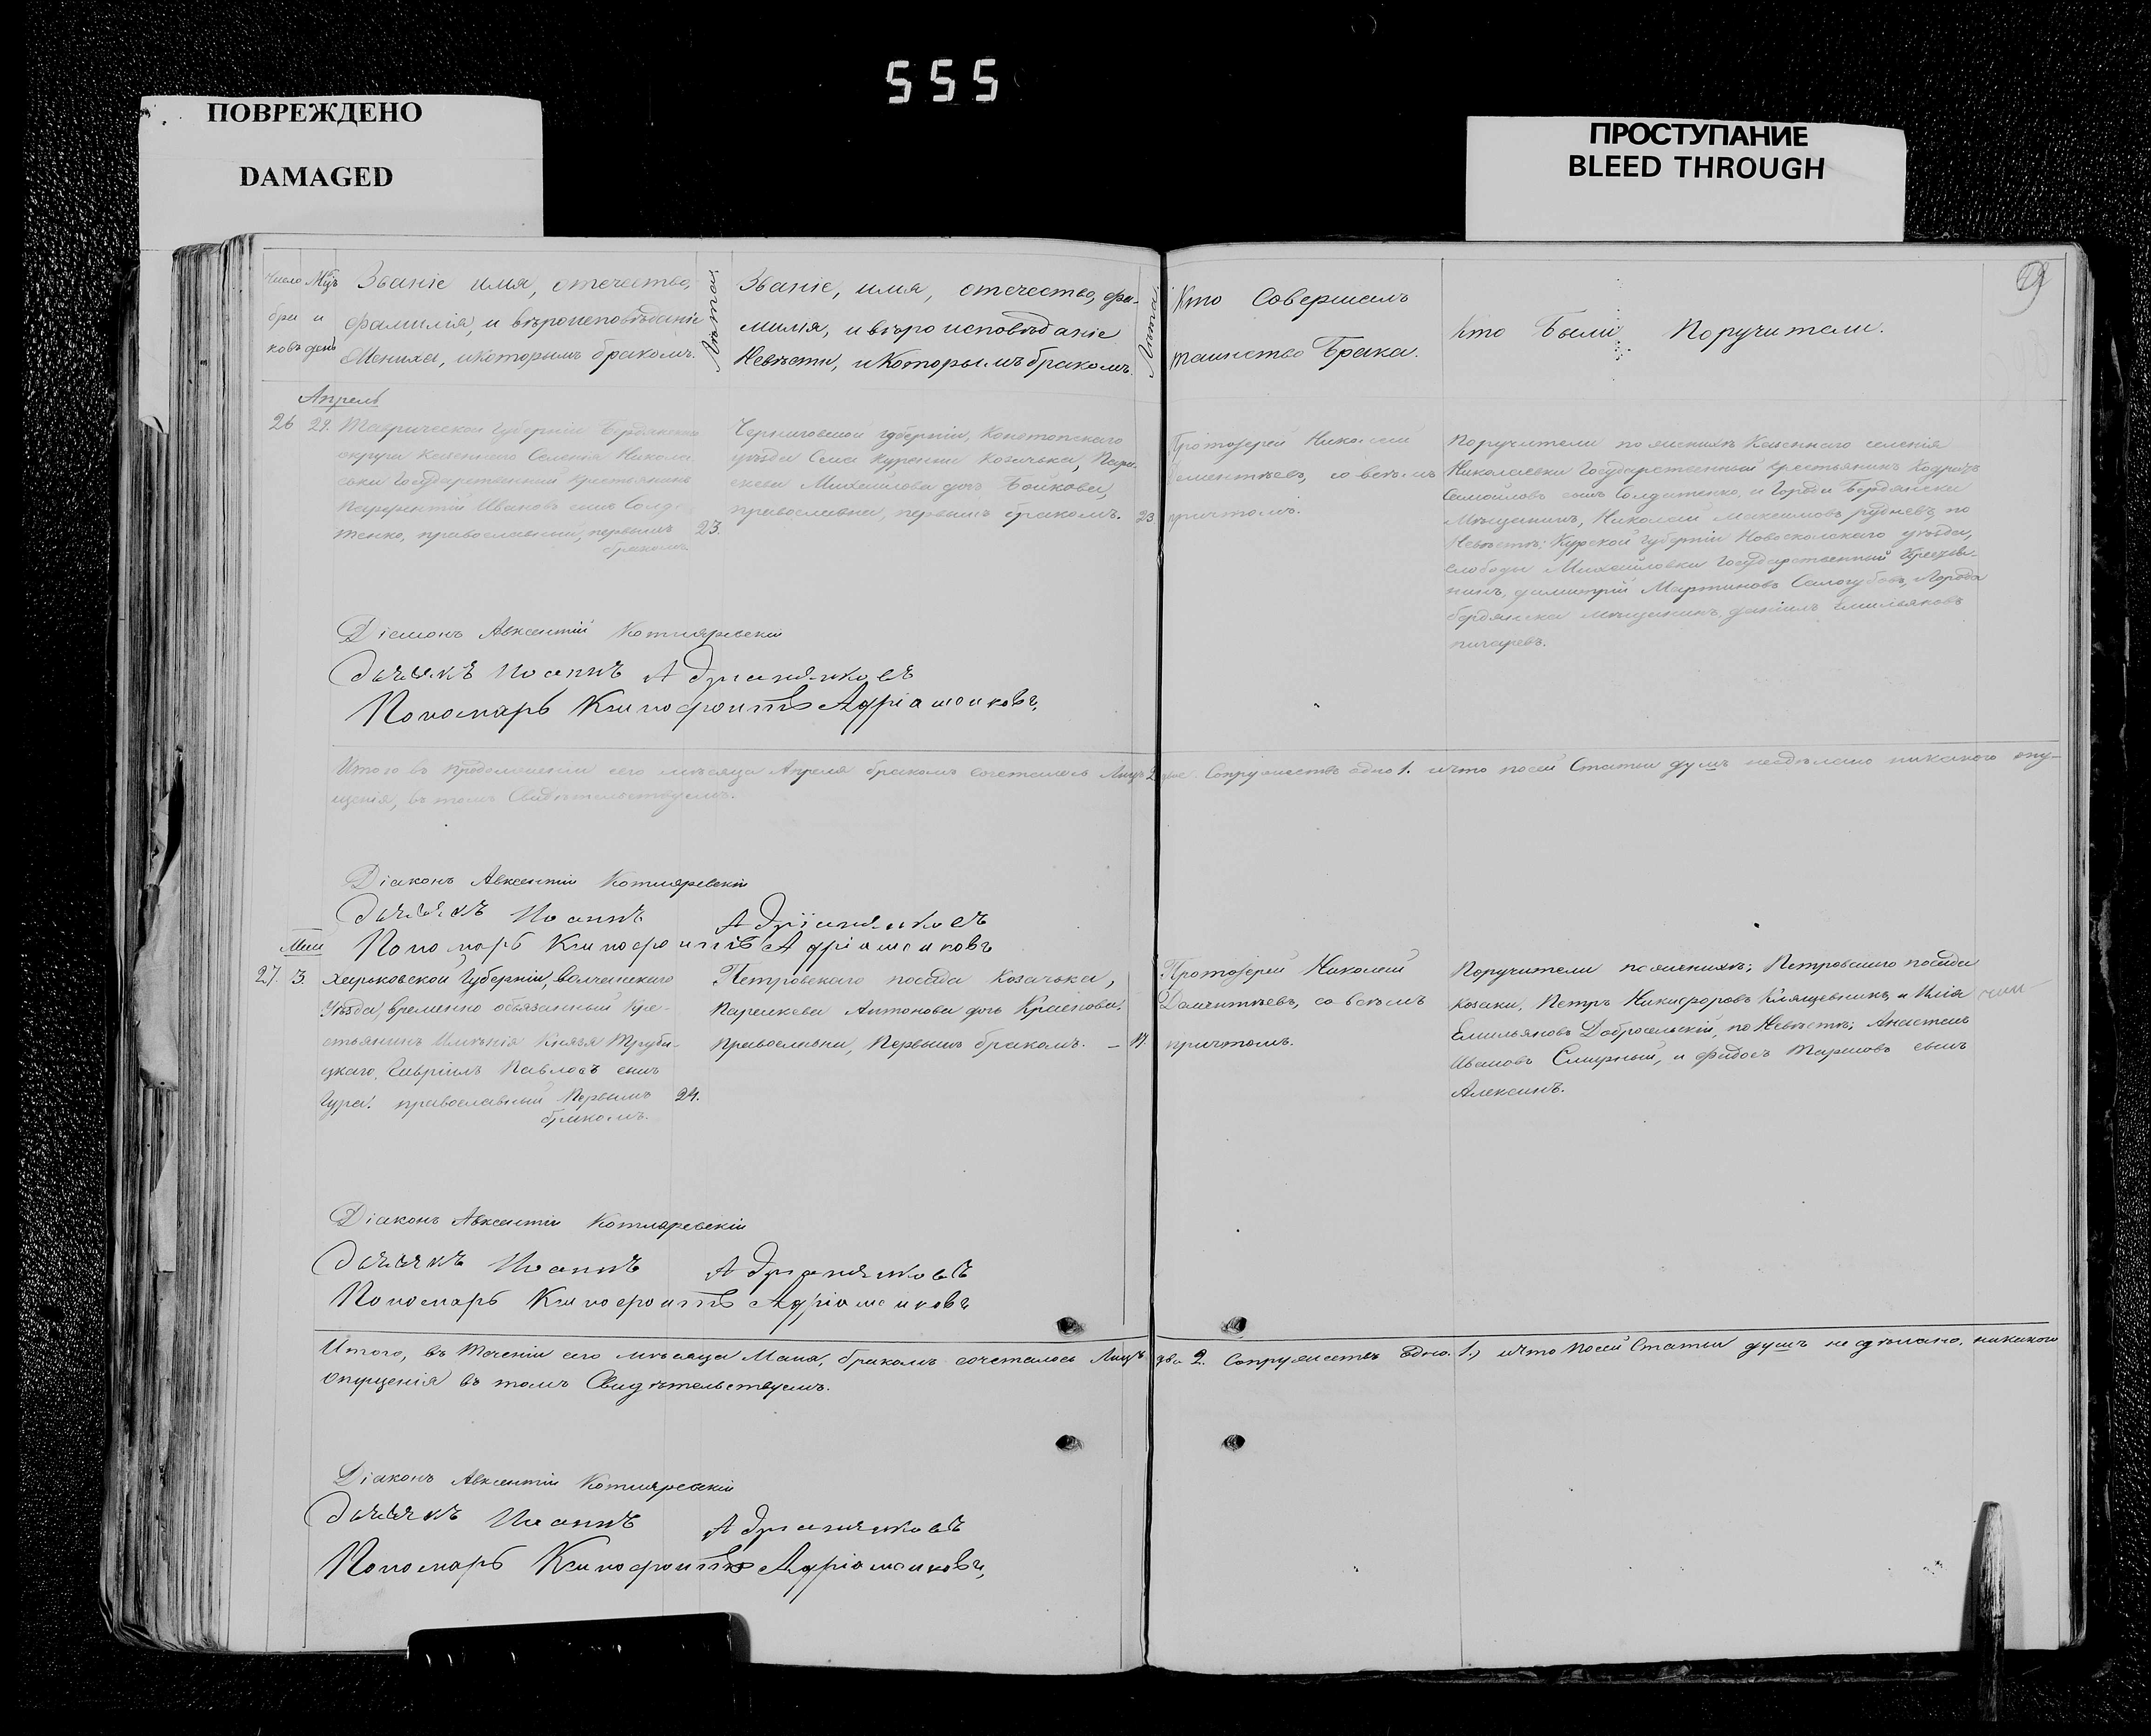 555
ПОВРЕЖДЕНО
DAMAGED
ПРОСТУПАНИЕ
BLEED THROUGH
9
Число бра ковъ
Мцъ и день
Званіе имя, отечество,
фамилія, и вѣроисповѣданіе
Жениха, и которымъ бракомъ.
Лѣта
Званіе, имя, отечество, фа-
милія, и вѣроисповѣданіе
Невѣсты, и Которымъ бракомъ.
Лѣта.
Кто Совершалъ
таинство Брака.
Кто Были Поручители.
Апрель
26 29. Таврической Губерніи Бердянскаго
округа Казеннаго Селенія Никола
евки Государственный Крестьянинъ
Парфентій Ивановъ сынъ Солда
тенко, православный, первымъ 23.
бракомъ.
Черниговской губерніи, Конотопскаго
уѣзда Села Куреньи Козачька, Пара-
скева Михайлова дочь Бойкова,
православна, первымъ бракомъ. 23
Протоіерей Николай
со всѣмъ
причтомъ.
Поручители по женихѣ Казеннаго селенія
Николаевки Государственный крестьянинъ
Самойловъ сынъ Солдатенко, и Города Бердянска
Мѣщанинъ, Николай Максимовъ Рудневъ, по
Невѣстѣ; Курской Губерніи Новооскольскаго уѣзда,
слободы Михайловки Государственный Крестья-
нинъ, Димитрій Мартиновъ Самогубовъ, Города
бердянска мѣщанинъ, Даніилъ Емильяновъ
писаревъ.
Діаконъ Авксентій Котляревскій
Дьячекъ Иоаннъ Адриановъ
Пономарь Ксенофонтъ Адріановъ
Итого въ продолженіи сего мѣсяца Апреля бракомъ сочеталось Лицъ 2 двое. Сопружествъ одно 1. и что посей Статьи душъ несдѣлано никакого опу-
щенія, въ томъ Свидѣтельствуемъ.
Діаконъ Авксентій Котляревскій
Дьячекъ Иоаннъ
Пономарь Ксенофонтъ
Май
27. 3. Харьковской Губерніи, Волчанскаго
Уѣзда, временно обязанный Кре-
стьянинъ Имѣнія Князя Трубе-
цкаго, Гавріилъ Павловъ сынъ
Гура. православный Первымъ 24.
бракомъ.
Петровскаго посада Козачька,
Параскева Антонова дочь Краснова.
Православна, Первымъ бракомъ. –
Протоіерей Николай
со всѣмъ
причтомъ.
Поручители по женихѣ; Петровскаго посада
козаки, Петръ Никифоровъ Клящевникъ, и Илія
Емильяновъ Добросельскій, по Невѣстѣ;
Ивановъ Смирный, и Федосъ сынъ
Алексинъ.
Діаконъ Авксентій Котляревскій
Дьячекъ Иоаннъ
Пономарь Ксенофонтъ
Итого, въ теченіи сего мѣсяца Мая, бракомъ сочеталось Лицъ два 2. Сопружествъ Одно. 1., и что посей Статьи душъ не сдѣлано, никакого
опущенія въ томъ Свидѣтельствуемъ.
Діаконъ Авксентій Котляревскій
Дьячекъ Иоаннъ
Пономарь Ксенофонтъ